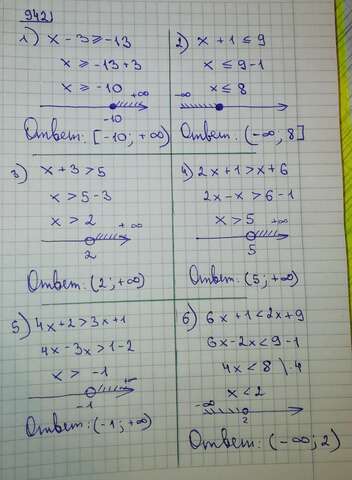 942)
1) x - 3 ≥ -13
x ≥ -13 + 3
x ≥ -10
+∞
-10
Ответ: [-10; +∞)
2) x + 1 ≤ 9
x ≤ 9 - 1
x ≤ 8
-∞
Ответ: (-∞; 8]
3) x + 3 > 5
x > 5 - 3
x > 2
+∞
2
Ответ: (2; +∞)
4) 2x + 1 > x + 6
2x - x > 6 - 1
x > 5
+∞
5
Ответ: (5; +∞)
5) 4x + 2 > 3x + 1
4x - 3x > 1 - 2
x > -1
+∞
-1
Ответ: (-1; +∞)
6) 6x + 1 < 2x + 9
6x - 2x < 9 - 1
4x < 8 \ :4
x < 2
-∞
2
Ответ: (-∞; 2)